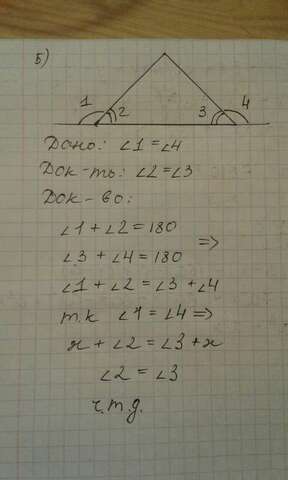 5)
1 2 3 4
Дано: ∠1 = ∠4
Док-ть: ∠2 = ∠3
Док-во:
∠1 + ∠2 = 180
=>
∠3 + ∠4 = 180
∠1 + ∠2 = ∠3 + ∠4
т.к ∠1 = ∠4 =>
x + ∠2 = ∠3 + x
∠2 = ∠3
ч.т.д.